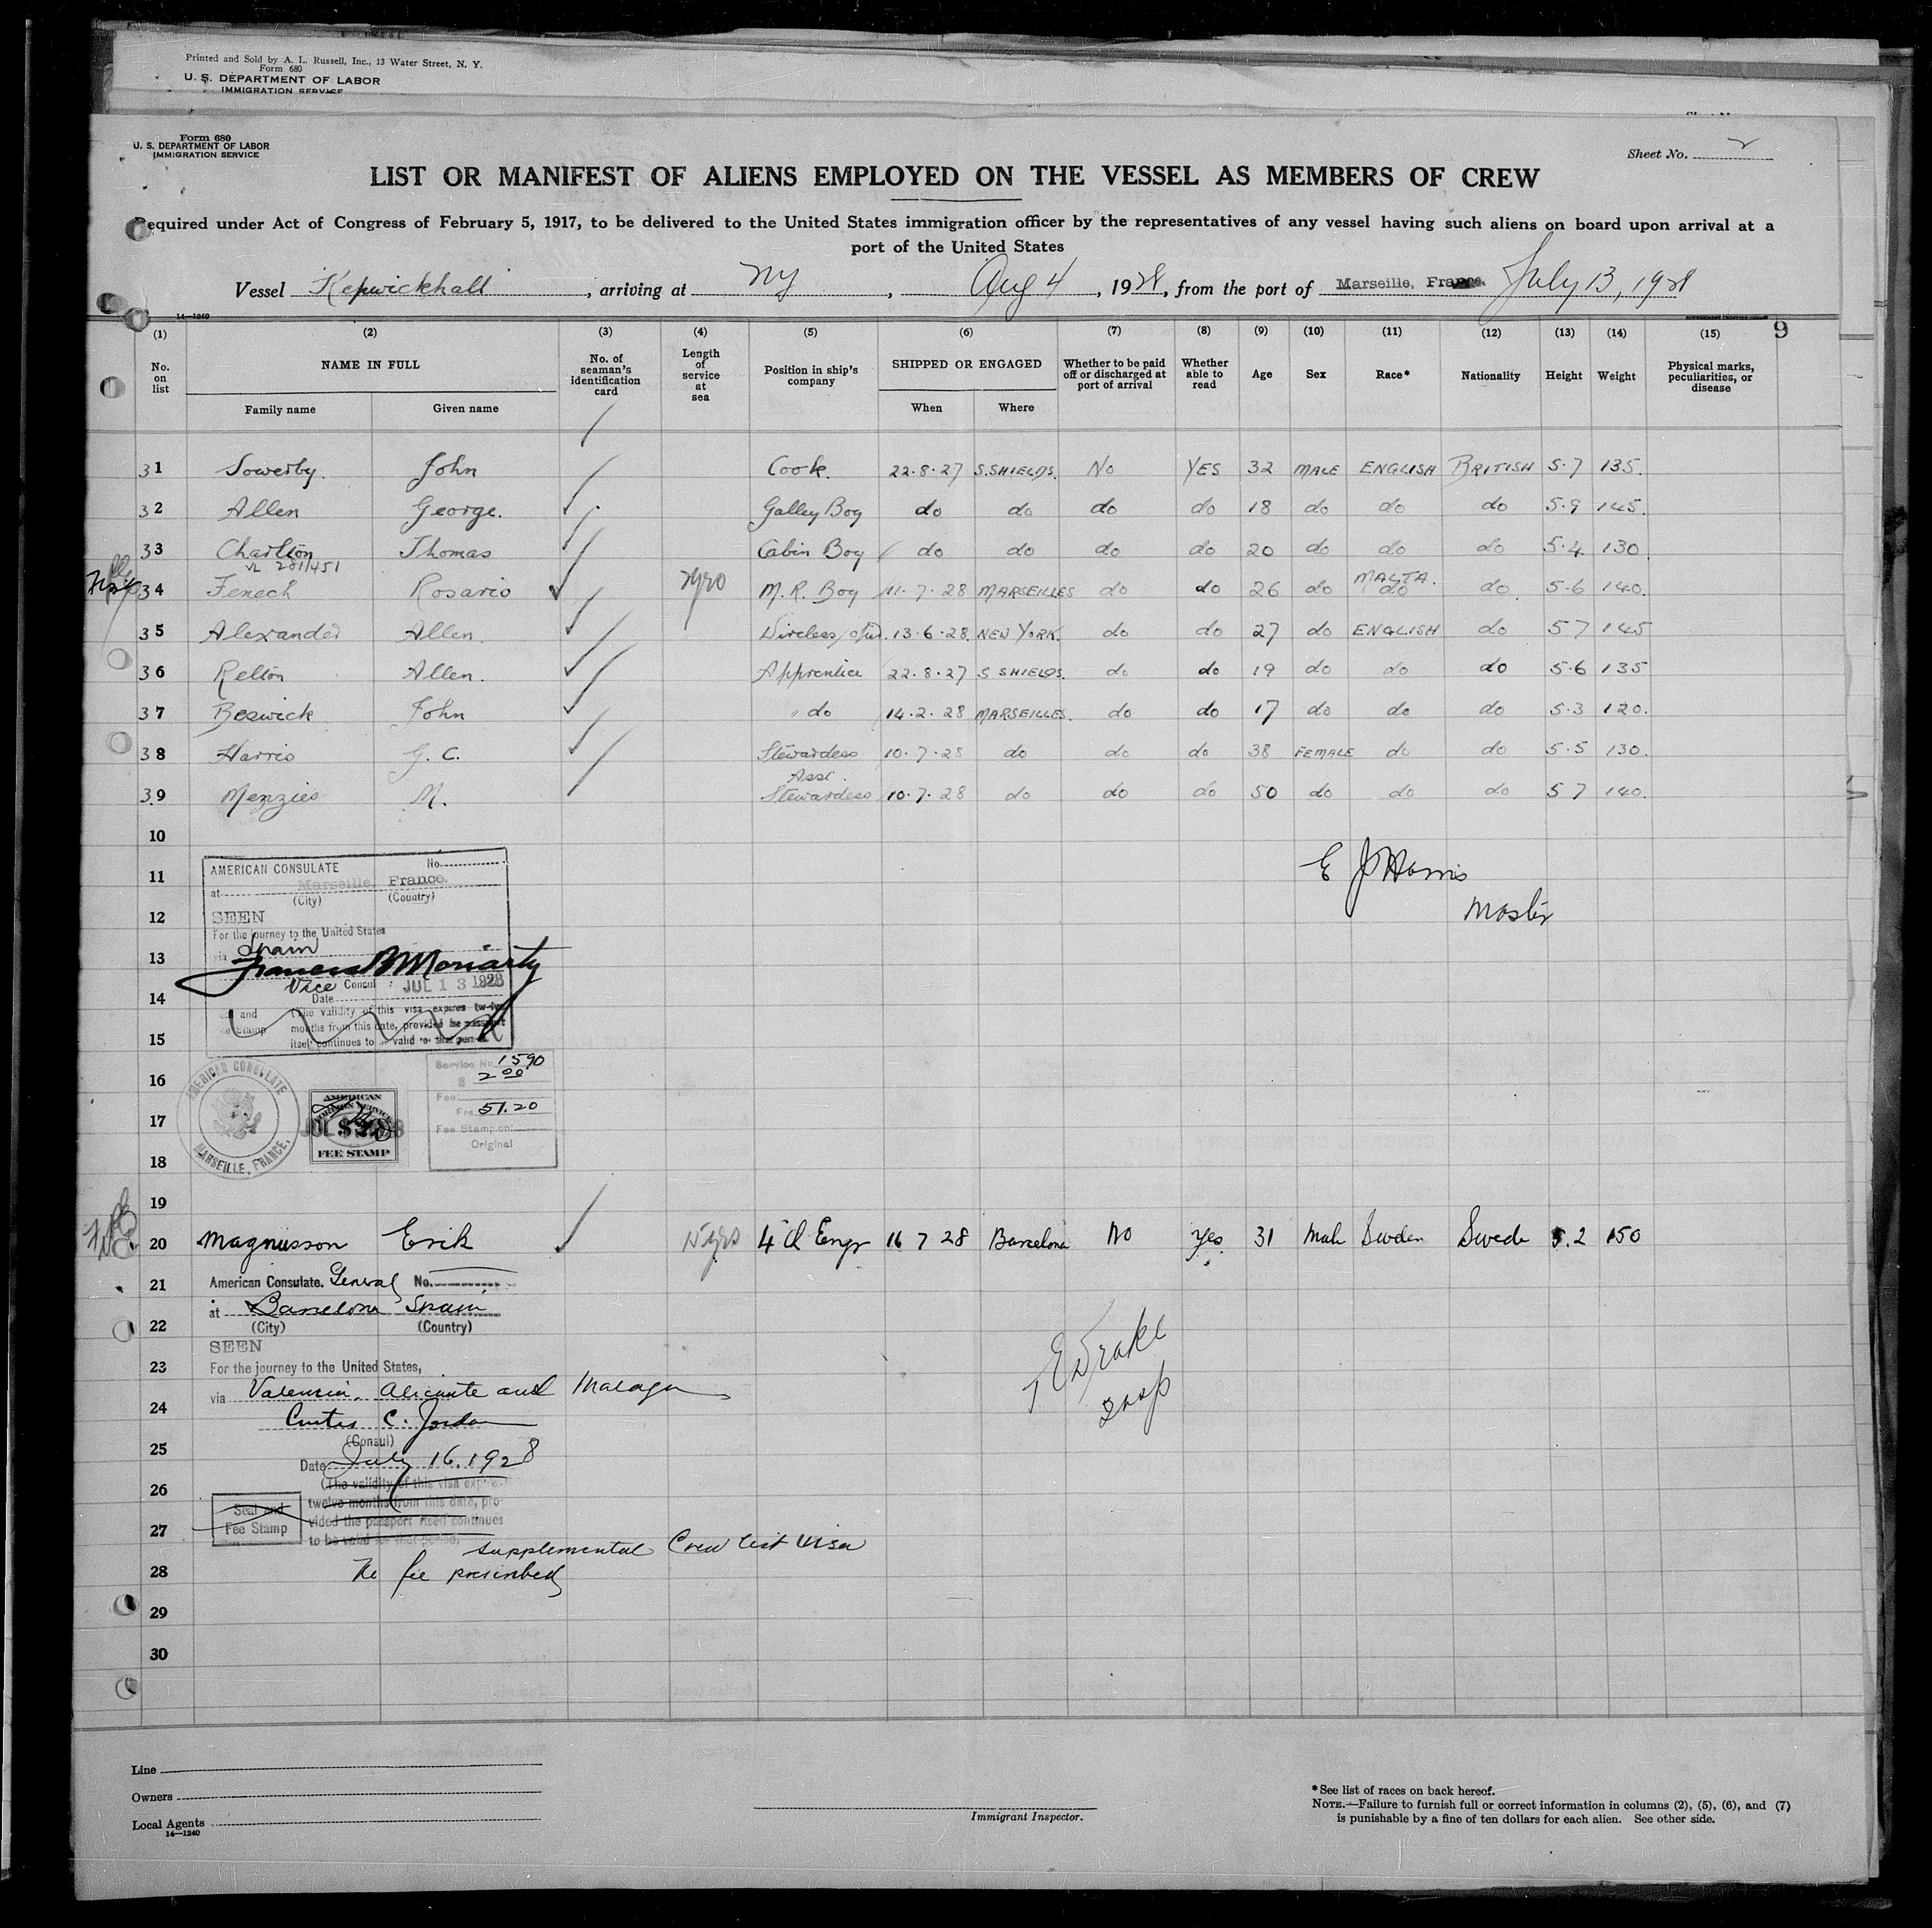 Printed and Sold by A. L. Russell, Inc., 13 Water Street, N. Y.
Form 680
U. S. DEPARTMENT OF LABOR
IMMIGRATION SERVICE
Form 680
U. S. DEPARTMENT OF LABOR
IMMIGRATION SERVICE
Sheet No. 2
LIST OR MANIFEST OF ALIENS EMPLOYED ON THE VESSEL AS MEMBERS OF CREW
Required under Act of Congress of February 5, 1917, to be delivered to the United States immigration officer by the representatives of any vessel having such aliens on board upon arrival at a
port of the United States
Vessel Kepwickhall, arriving at NY, Aug 4, 1928, from the port of Marseille, France. July 13, 1928
14—1240
(1) (2) (3) (4) (5) (6) (7) (8) (9) (10) (11) (12) (13) (14) (15) 9
No. on list NAME IN FULL Family name Given name No. of seaman's identification card Length of service at sea Position in ship's company SHIPPED OR ENGAGED When Where Whether to be paid off or discharged at port of arrival Whether able to read Age Sex Race* Nationality Height Weight Physical marks, peculiarities, or disease
31 Sowerby. John Cook. 22.8.27 S.SHIELDS. No YES 32 MALE ENGLISH BRITISH 5.7 135.
32 Allen George. Galley Boy do do do do 18 do do do 5.9 145.
33 Charlton Thomas Cabin Boy do do do do 20 do do do 5.4 130
281/451
34 Fenech Rosario M. R. Boy 11.7.28 MARSEILLES do do 26 do MALTA. do do 5.6 140.
35 Alexander Allen. Wireless Optr. 13.6.28. NEW YORK. do do 27 do ENGLISH do 5 7 145
36 Relton Allen. Apprentice 22.8.27 S SHIELDS. do do 19 do do do 5.6 135
37 Beswick John do 14.2.28 MARSEILLES. do do 17 do do do 5.3 120.
38 Harris G. C. Stewardess 10.7.28 do do do 38 FEMALE do do 5.5 130.
39 Menzies M. Asst. Stewardess 10.7.28 do do do 50 do do do 5 7 140.
10
11
12
13
14
15
16
17
18
19
E J Harris
Master
AMERICAN CONSULATE No.
at Marseille, France.
(City) (Country)
SEEN
For the journey to the United States
via Spain
Francis B Moriarty
Vice Consul
Date JUL 13 1928
(The validity of this visa expires twelve
months from this date, provided the passport
itself continues to be valid for that period
Service No. 1590
$ 2.00
Fee
Frs. 51.20
Fee Stamp on
Original
AMERICAN CONSULATE
MARSEILLE, FRANCE.
AMERICAN
FOREIGN SERVICE
FEE STAMP
20 Magnusson Erik 4th Engr 16 7 28 Barcelona No Yes 31 Male Sweden Swede 5.2 150
21
22
23
24
25
26
27
28
29
30
American Consulate. General No.
at Barcelona Spain
(City) (Country)
SEEN
For the journey to the United States,
via Valencia, Alicante and Malaga
Curtis C. Jordan
(Consul)
Date July 16. 1928
(The validity of this visa expires
twelve months from this date, pro-
vided the passport itself continues
to be valid for that period.
Seal and
Fee Stamp
Supplemental Crew list visa
No fee prescribed
Drake
Insp
Line
Owners
Local Agents
14—1240
Immigrant Inspector.
*See list of races on back hereof.
NOTE.—Failure to furnish full or correct information in columns (2), (5), (6), and (7)
is punishable by a fine of ten dollars for each alien. See other side.